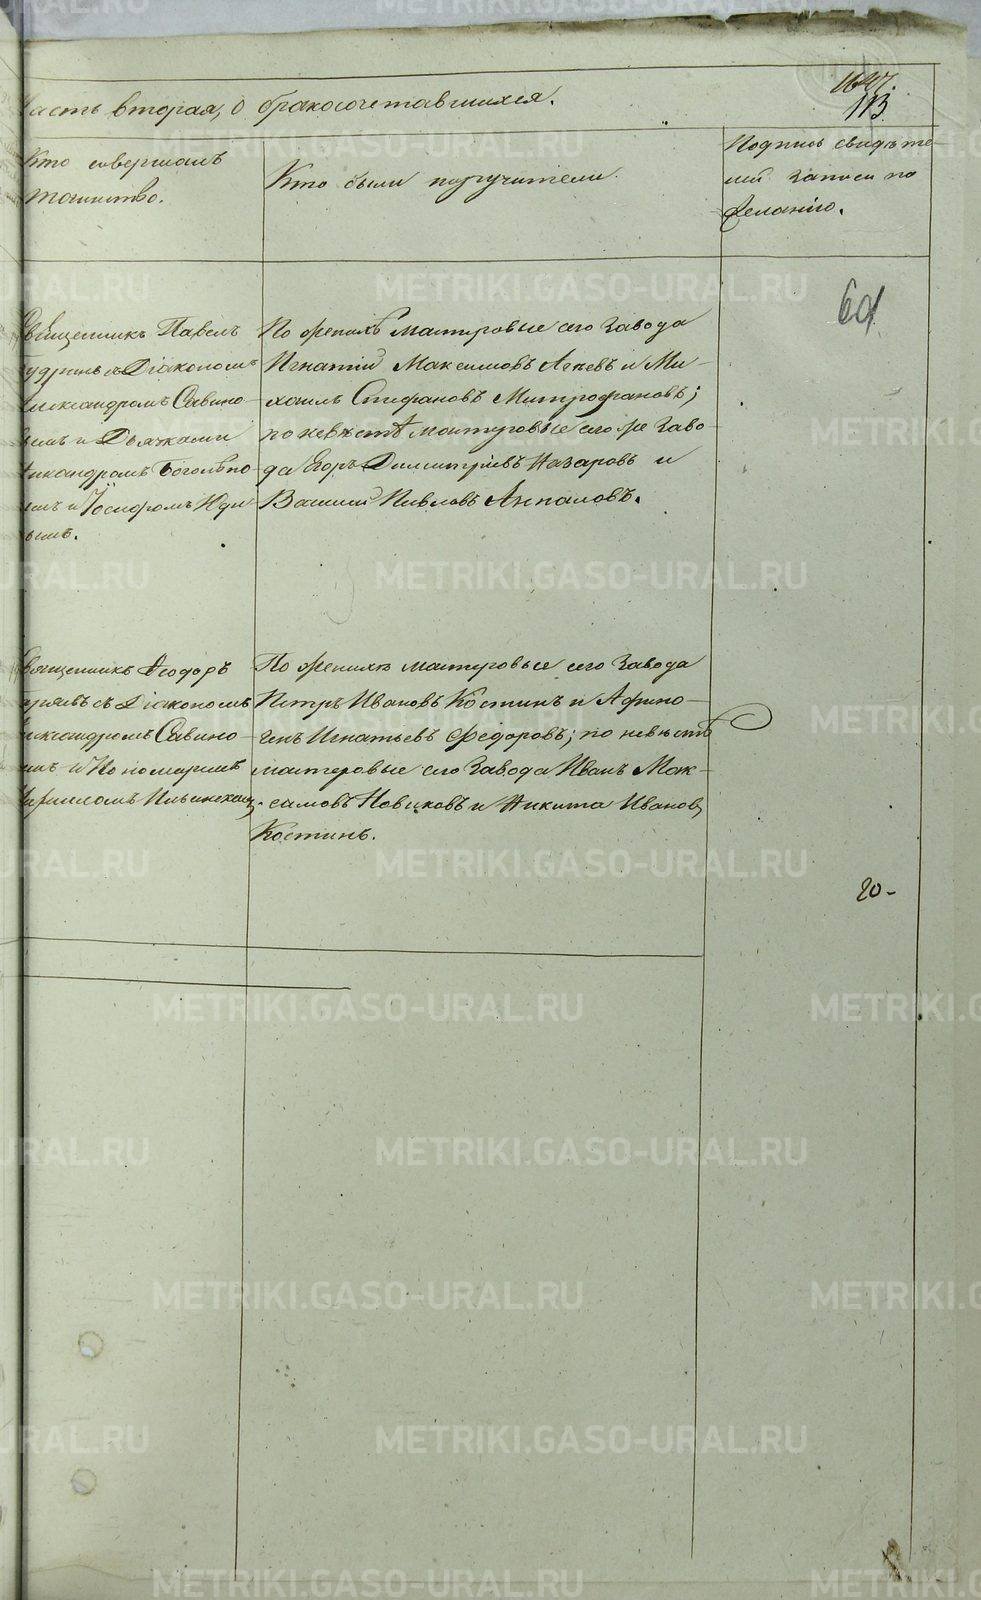 Часть вторая, о бракосочетавшихся.
1647.
113
Кто совершалъ
таинство.
Кто были поручители.
Подпись свидѣте-
лей записи по
желанію.
60
Священникъ Павелъ
съ Діакономъ
Александромъ Савино-
вымъ и Дьячками
Никандромъ Боголѣпо-
вымъ и Іосифомъ Юди-
нымъ.
По женихѣ мастеровые сего завода
Игнатій Максимовъ Агѣевъ и Ми-
хаилъ Стефановъ Митрофановъ;
по невѣстѣ мастеровые сего же заво-
да Егоръ Димитріевъ Назаровъ и
Василій Павловъ
Священникъ Ѳеодоръ
съ Діакономъ
Александромъ Савино-
вымъ и Пономаремъ
Кирилломъ Ильинскимъ.
По женихѣ мастеровые сего завода
Петръ Ивановъ Костинъ и Афино-
генъ Игнатьевъ Федоровъ; по невѣстѣ
мастеровые сего завода Иванъ Мак-
симовъ Новиковъ и Никита Ивановъ
Костинъ.
20-
METRIKI.GASO-URAL.RU